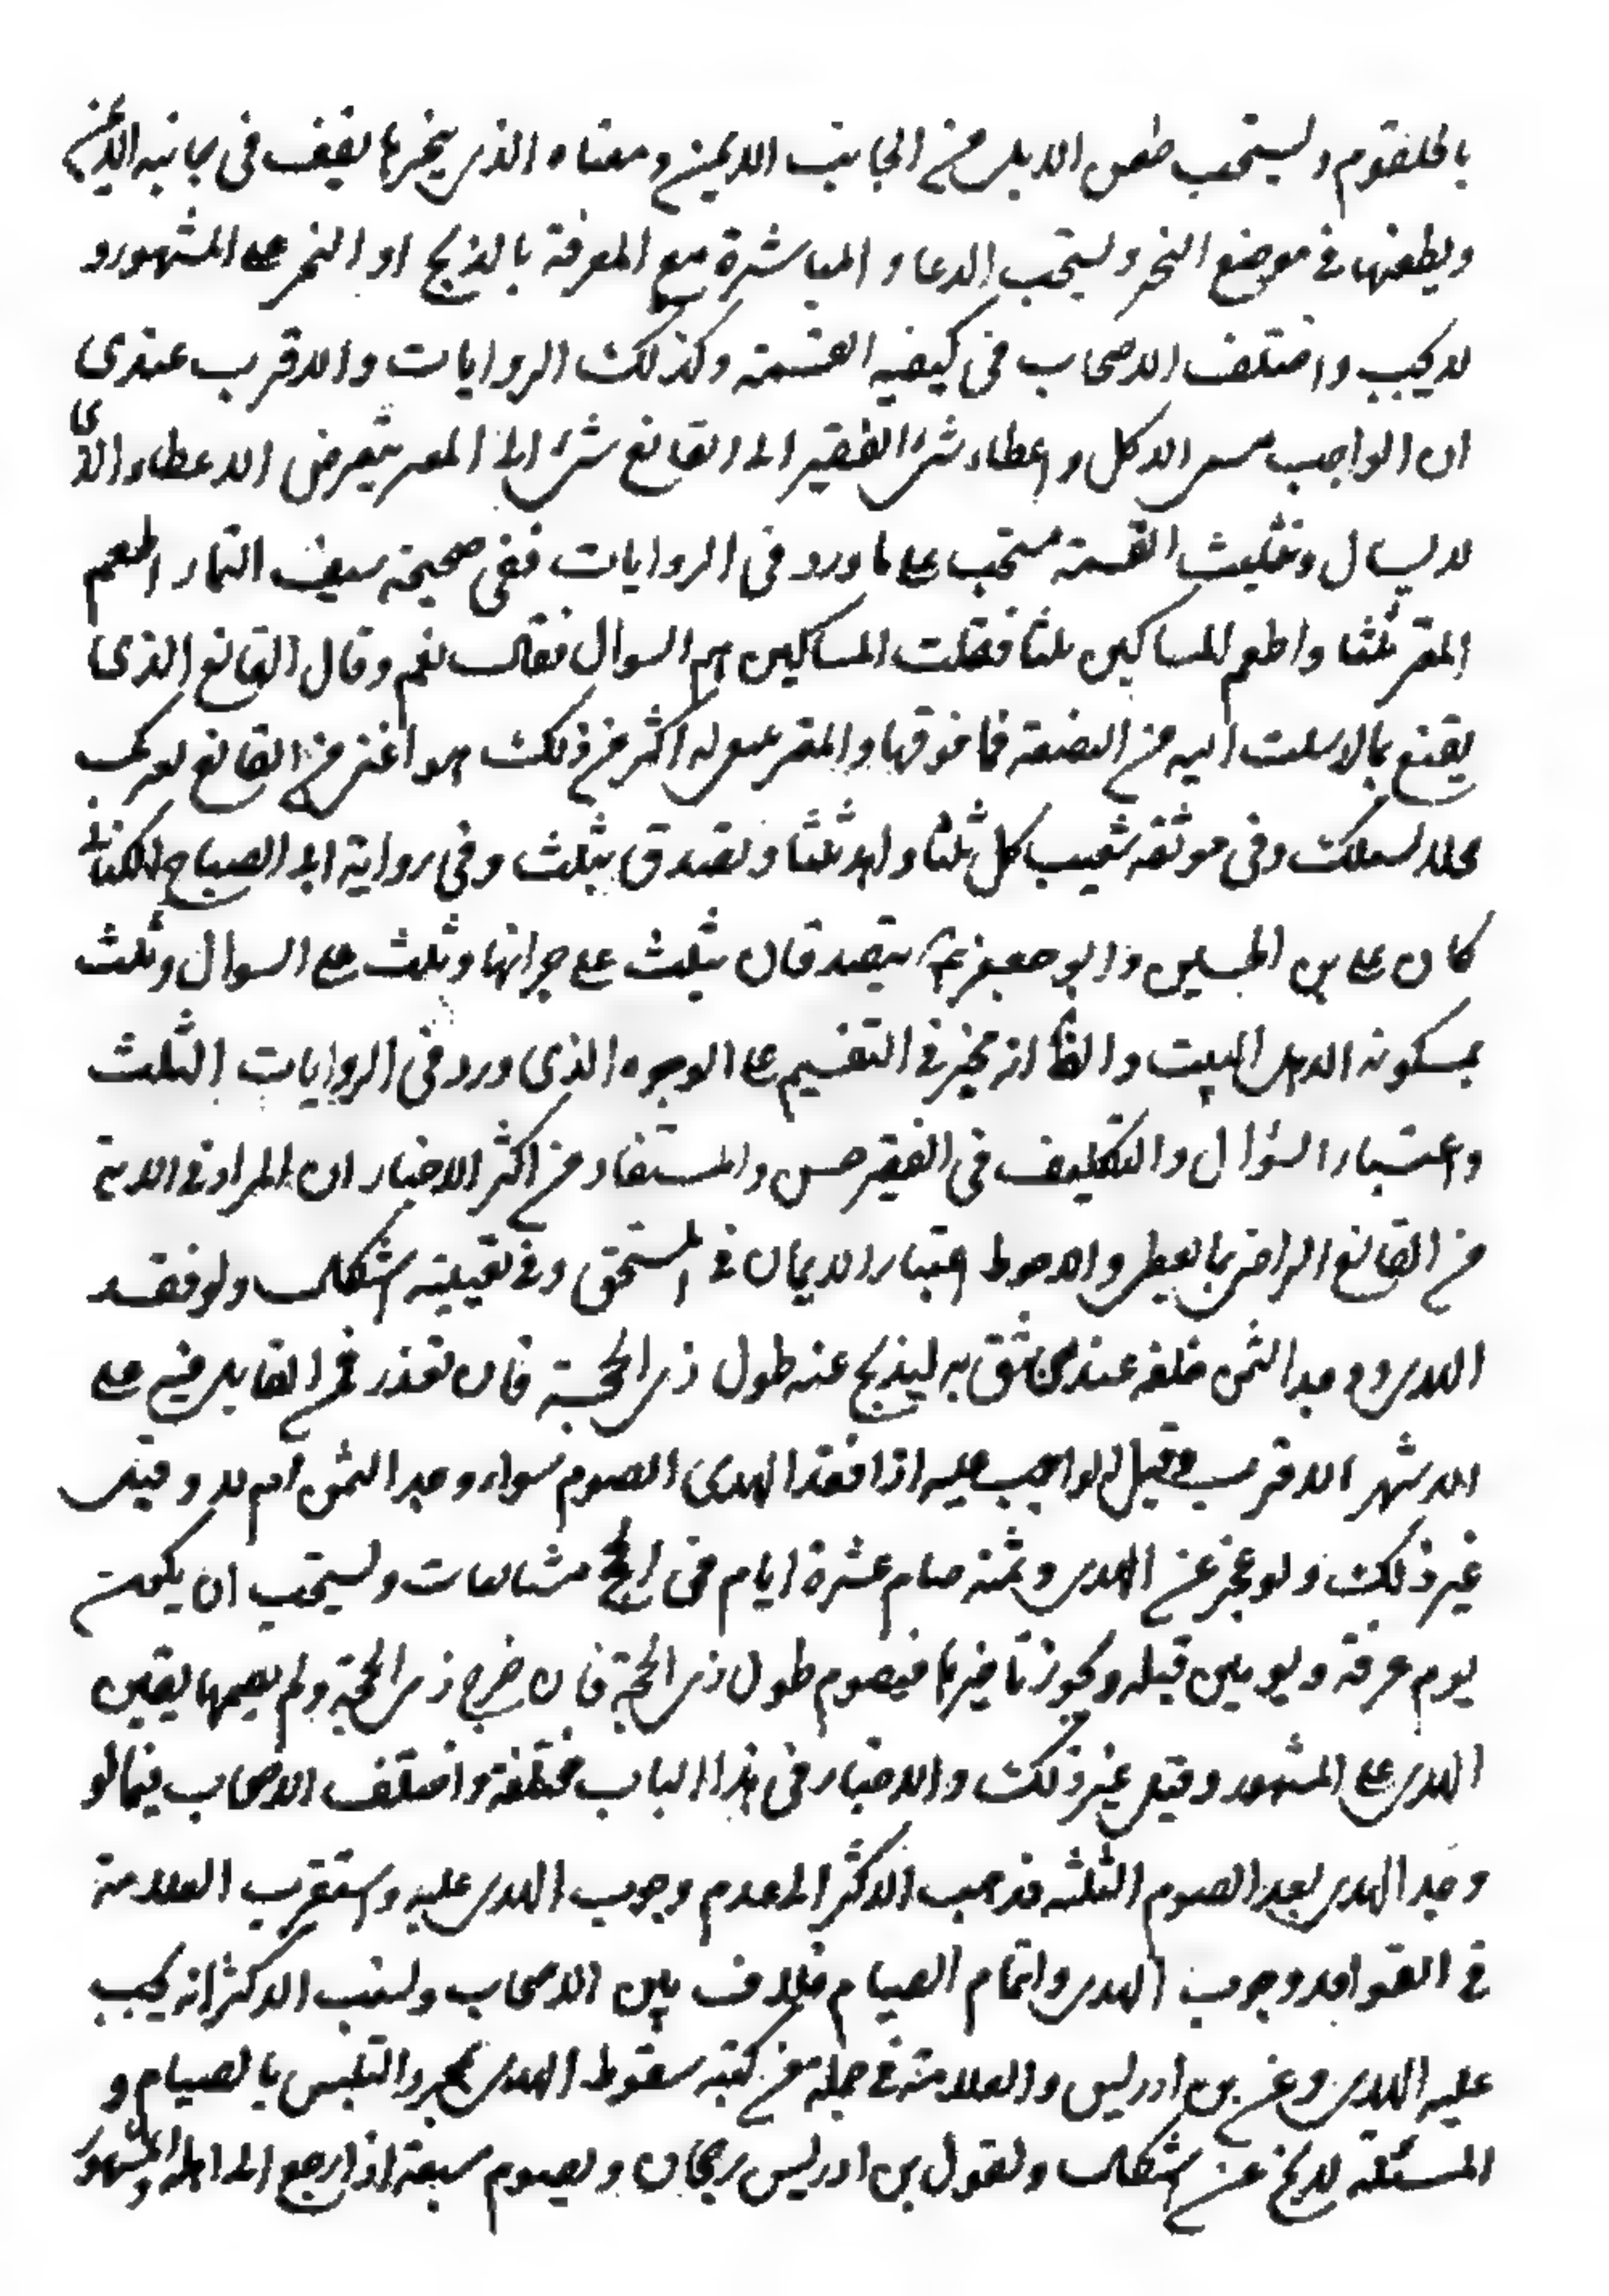 بالحلقوم ويستحب طعن الابل من الجانب الايمن ومعناه الذي ينحرها يقف في جانبه الايمن
ويطعنها في موضع النحر ويستحب الدعاء والمباشرة مع المعرفة بالذبح او النحر على المشهور و
لا يجب واختلف الاصحاب في كيفيه القسمة وكذلك الروايات والاقرب عندي
ان الواجب مسمى الاكل واعطاء شئ الفقير الى القانع شئ الى المعتر يتعرض الاعطاء والا
لا يسال وتثليث القسمة مستحب على ما ورد في الروايات ففي صحيحة سيف التمار اطعم
المعتر ثلثا واطعم المساكين ثلثا فقلت المساكين هم السوال فقال نعم وقال القانع الذي
يقنع بما ارسلت اليه من البضعة فما فوقها والمعتر ينبغي له اكثر من ذلك هو اغنى من القانع يعتريك
فلا يسئلك وفي موثقه شعيب كل ثلثا واهد ثلثا وتصدق بثلث وفي رواية ابى الصباح الكناني
كان على بن الحسين وابو جعفر ع يتصدقان بثلث على جيرانها وثلث على السوال وثلث
يمسكونه الاهل البيت والظ انه مخير في التقسيم على الوجوه الذي ورد في الروايات الثلث
واعتبار السؤال والتكليف في الفقير حسن والمستفاد من اكثر الاخبار ان المراد في الاية
من القانع الراضي بما يعطى والاحوط اعتبار الايمان في المستحق وفي تعيينه اشكال ولو فقد
الهدي ووجد الثمن خلفه عند من يثق به ليذبح عنه طول ذي الحجة فان تعذر فمن القابل فيه على
الاشهر الاقرب وقيل الواجب عليه اذا فقد الهدى الصوم سواء وجد الثمن ام لا وقيل
غير ذلك ولو عجز عن الهدي وثمنه صام عشرة ايام في الحج متتابعات ويستحب ان يكون
يوم عرفة ويومين قبله ويجوز تاخيرها فيصوم طول ذي الحجة فان خرج ذي الحجة ولم يصمها يقين
الهدي على المشهور وقيل غير ذلك والاخبار في هذا الباب مختلفة واختلف الاصحاب فيما لو
وجد الهدي بعد الصوم الثلثه فذهب الاكثر الى عدم وجوب الهدي عليه واستقرب العلامة
في القواعد وجوب الهدي واتمام الصيام خلاف بين الاصحاب ونسب الاكثر انه يجب
عليه الهدي وعن بن ادريس والعلامة في جملة من كتبه سقوط الهدي بمجرد التلبس بالصيام و
المسئلة لا يخ عن اشكال ولقول بن ادريس رجحان ويصوم سبعة اذا رجع الى اهله والمشهور